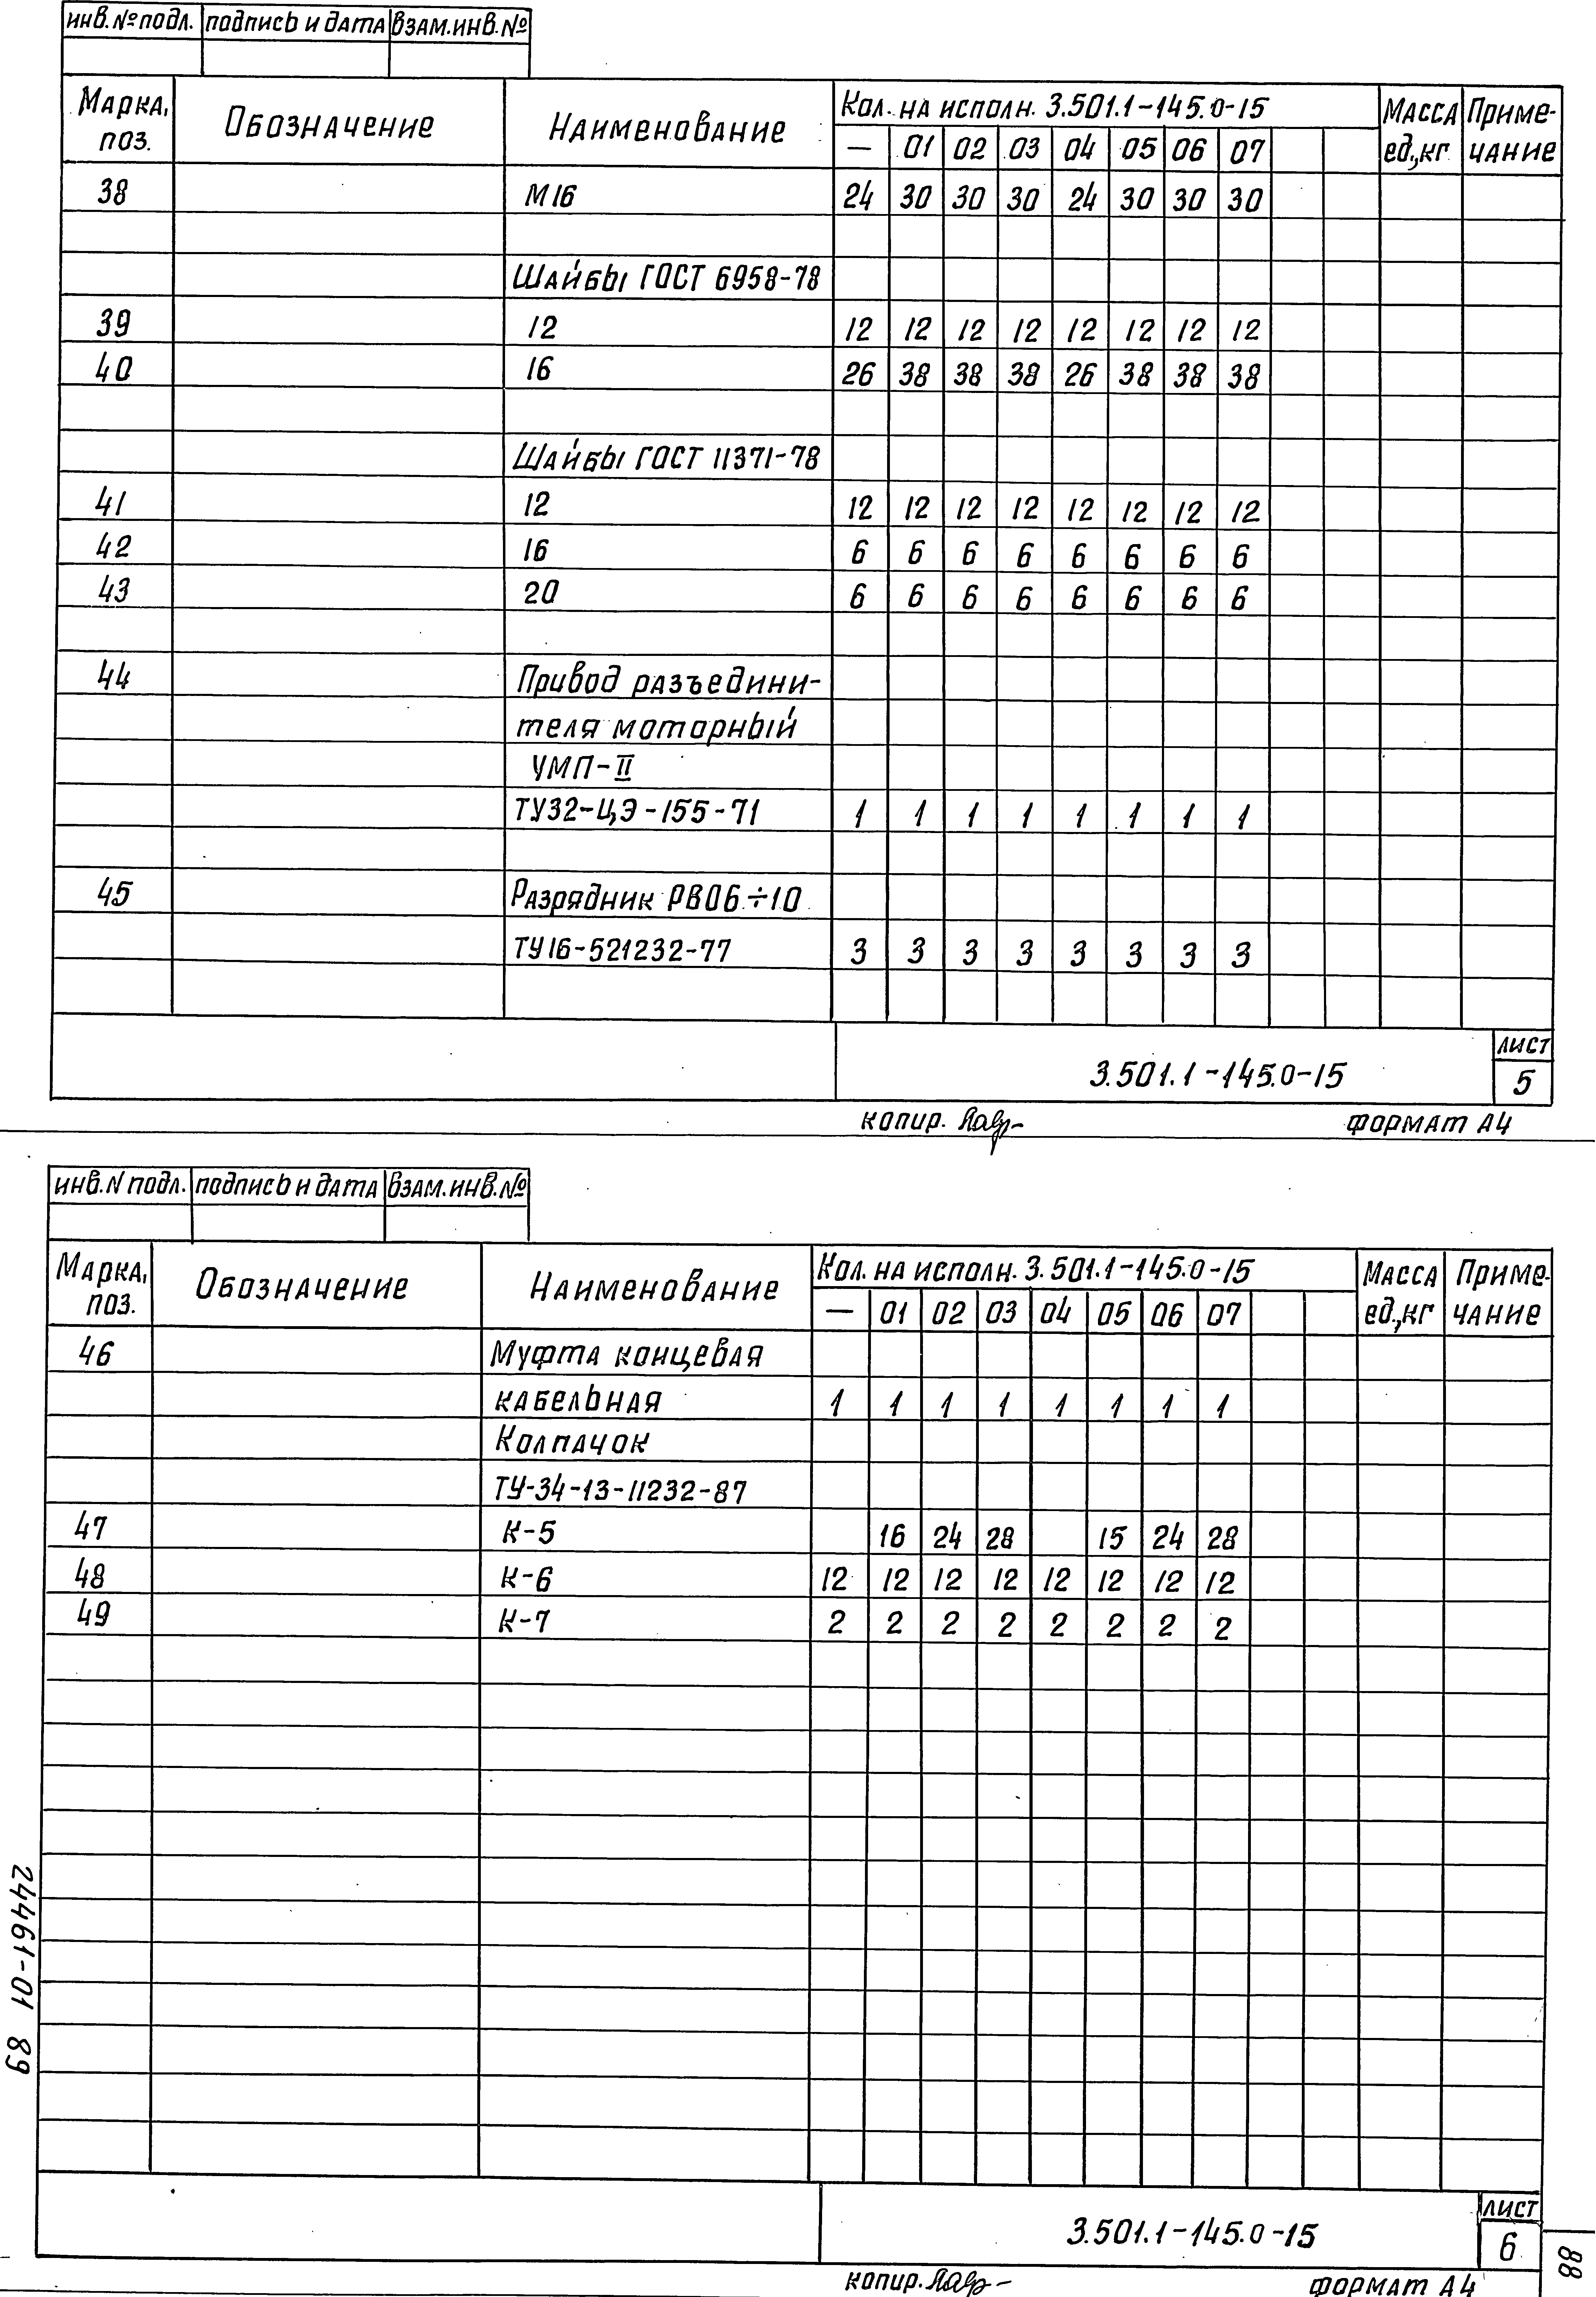 инв. № подл. подпись и дата взам. инв. №
Марка, поз. Обозначение Наименование Кол. на исполн. 3.501.1-145.0-15 Масса ед., кг Приме-чание
— 01 02 03 04 05 06 07
38 М16 24 30 30 30 24 30 30 30
Шайбы ГОСТ 6958-78
39 12 12 12 12 12 12 12 12 12
40 16 26 38 38 38 26 38 38 38
Шайбы ГОСТ 11371-78
41 12 12 12 12 12 12 12 12 12
42 16 6 6 6 6 6 6 6 6
43 20 6 6 6 6 6 6 6 6
44 Привод разъедини-
теля моторный
УМП-II
ТУ32-ЦЭ-155-71 1 1 1 1 1 1 1 1
45 Разрядник РВО6÷10
ТУ16-521232-77 3 3 3 3 3 3 3 3
3.501.1-145.0-15 лист 5
копир. формат А4
инв. N подл. подпись и дата взам. инв. №
Марка, поз. Обозначение Наименование Кол. на исполн. 3.501.1-145.0-15 Масса ед., кг Приме-чание
— 01 02 03 04 05 06 07
46 Муфта концевая
кабельная 1 1 1 1 1 1 1 1
Колпачок
ТУ-34-13-11232-87
47 К-5 16 24 28 15 24 28
48 К-6 12 12 12 12 12 12 12 12
49 К-7 2 2 2 2 2 2 2 2
3.501.1-145.0-15 лист 6
копир. формат А4
24461-01 89
88